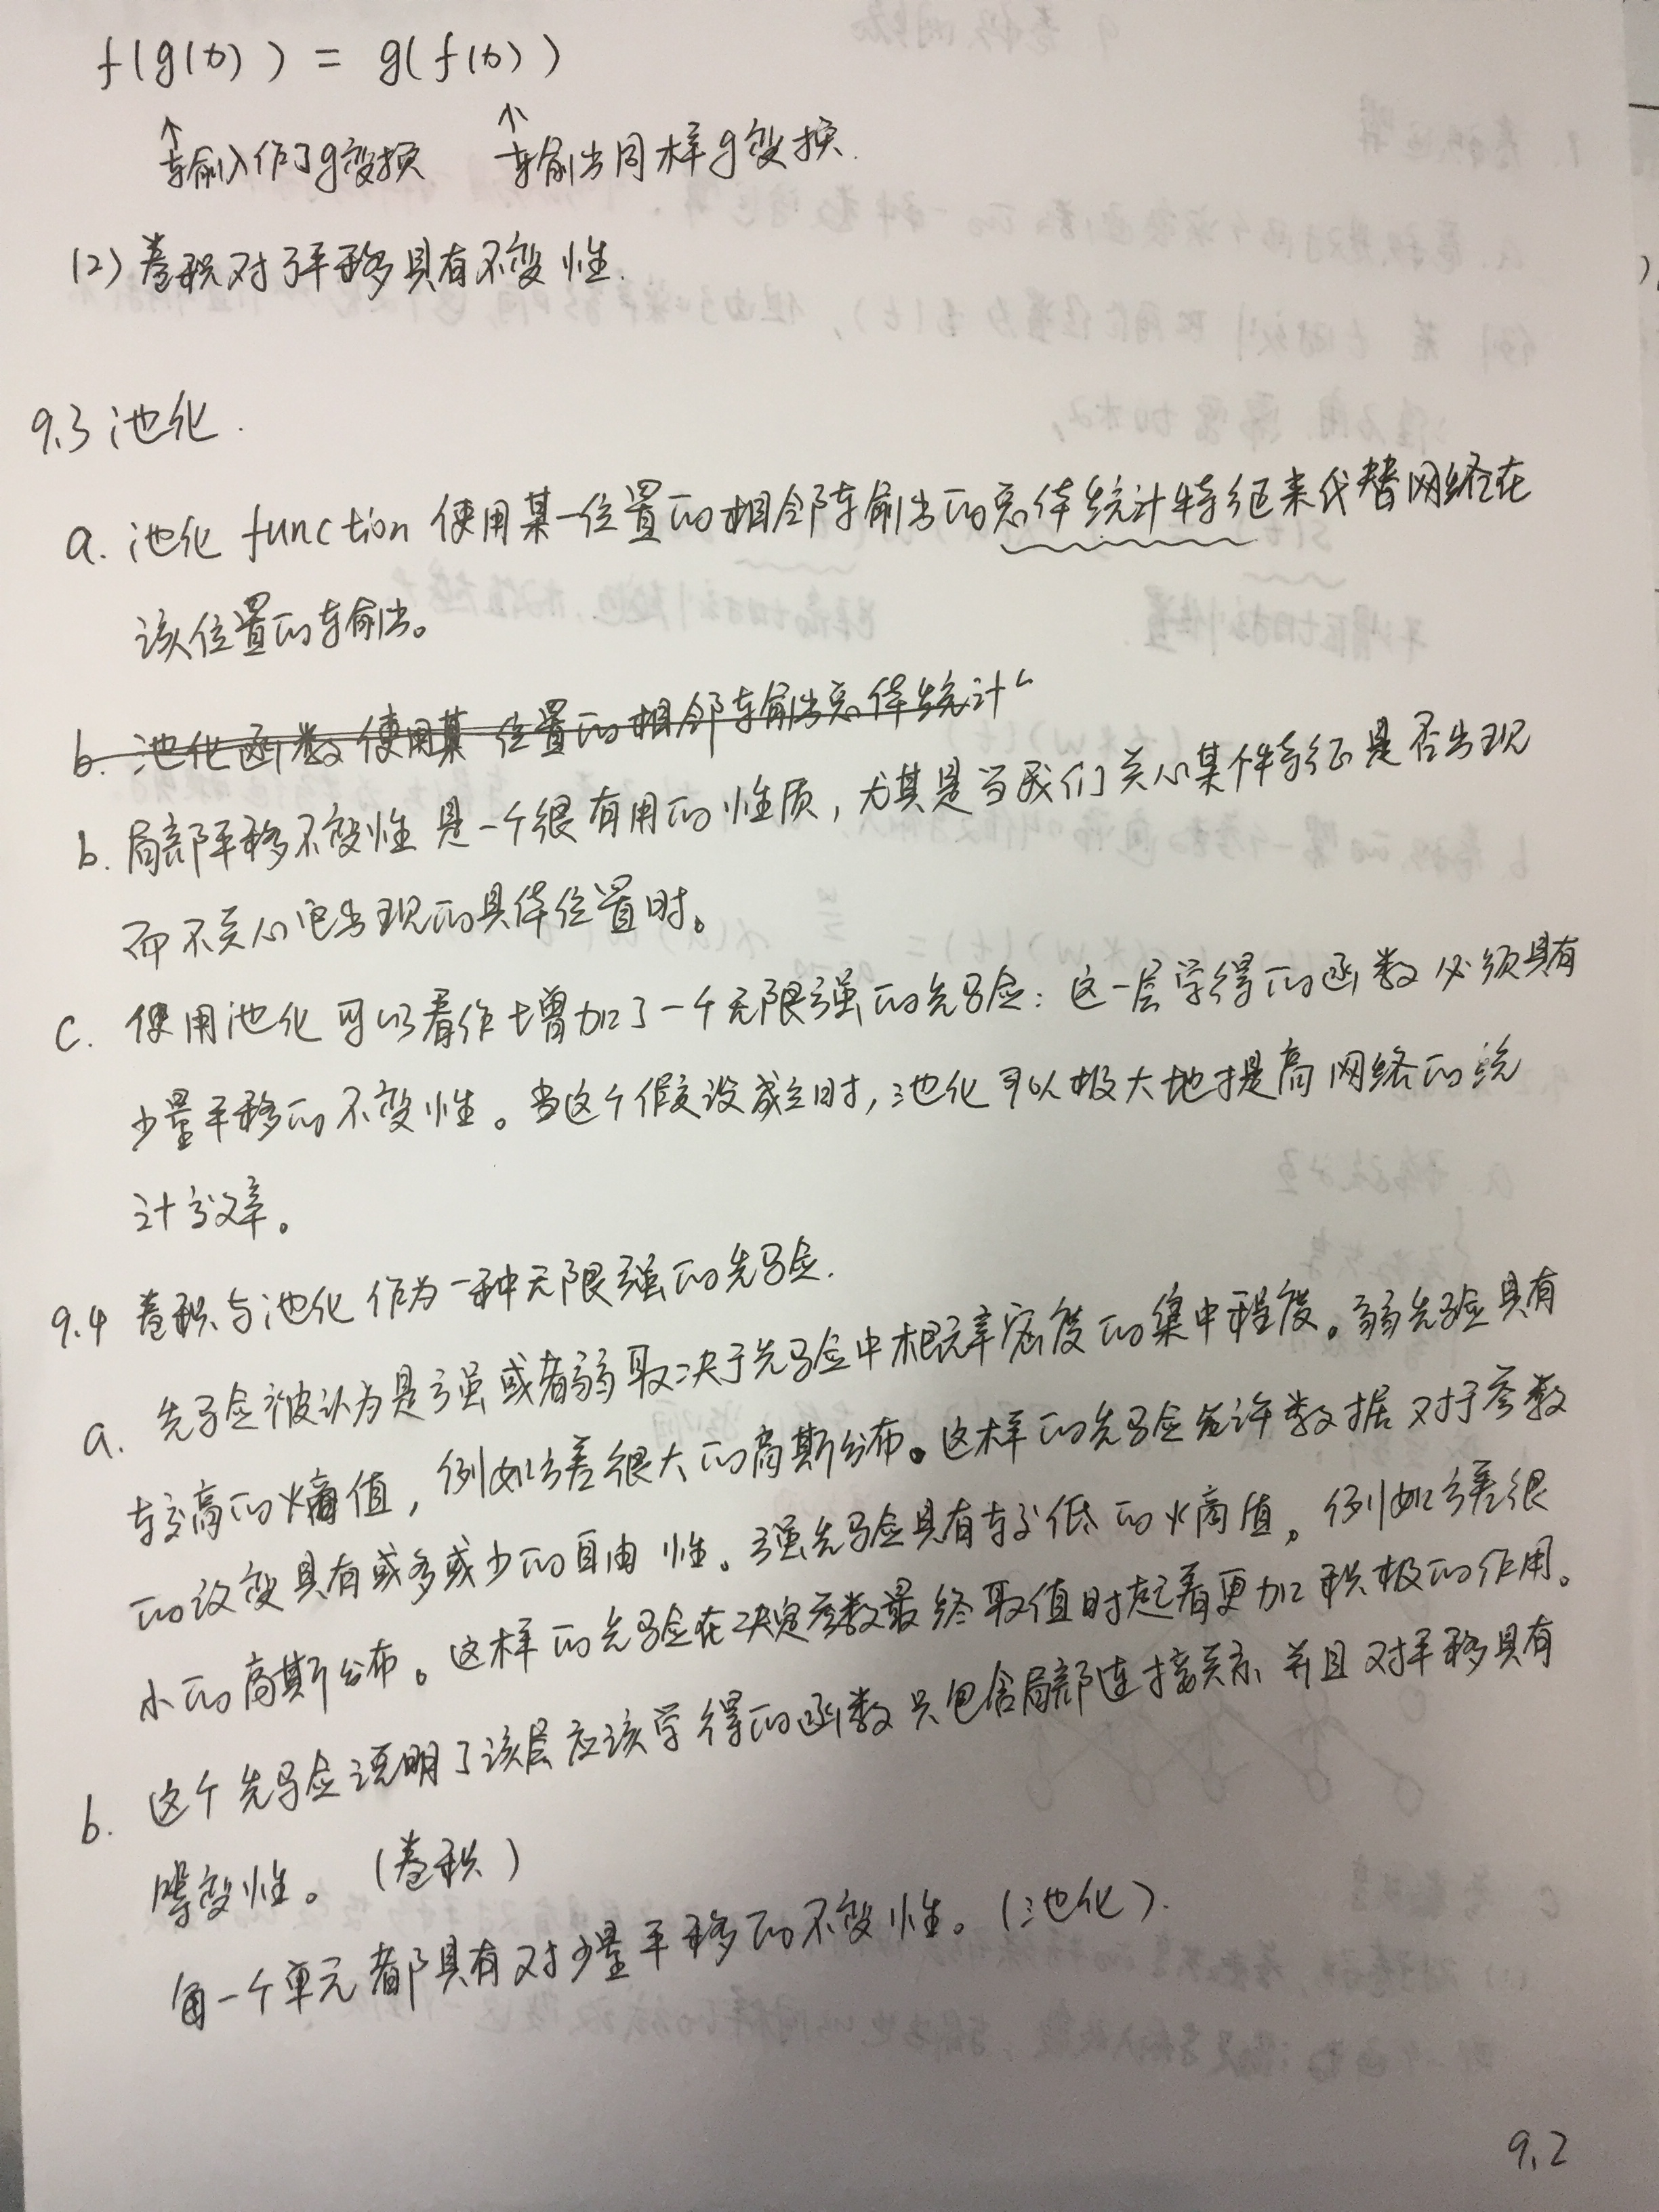 f(g(x)) = g(f(x))
↑ ↑
输入作了g变换 输出同样g变换.
(2) 卷积对于平移具有不变性.
9.3 池化.
a. 池化 function 使用某一位置的相邻输出的总体统计特征来代替网络在
该位置的输出。
b. 池化函数使用某 位置的相邻输出总体统计
b. 局部平移不变性是一个很有用的性质, 尤其是当我们关心某个特征是否出现
而不关心它出现的具体位置时。
c. 使用池化可以看作增加了一个无限强的先验: 这一层学得的函数必须具有
少量平移的不变性。当这个假设成立时, 池化可以极大地提高网络的统
计效率。
9.4 卷积与池化作为一种无限强的先验.
a. 先验被认为是强或者弱取决于先验中概率密度的集中程度。弱先验具有
较高的熵值, 例如方差很大的高斯分布。这样的先验允许数据对于参数
的改变具有或多或少的自由性。强先验具有较低的熵值。例如方差很
小的高斯分布。这样的先验在决定参数最终取值时起着更加积极的作用。
b. 这个先验说明了该层应该学得的函数只包含局部连接关系并且对平移具有
等变性。(卷积)
每一个单元都具有对少量平移的不变性。(池化).
9.2